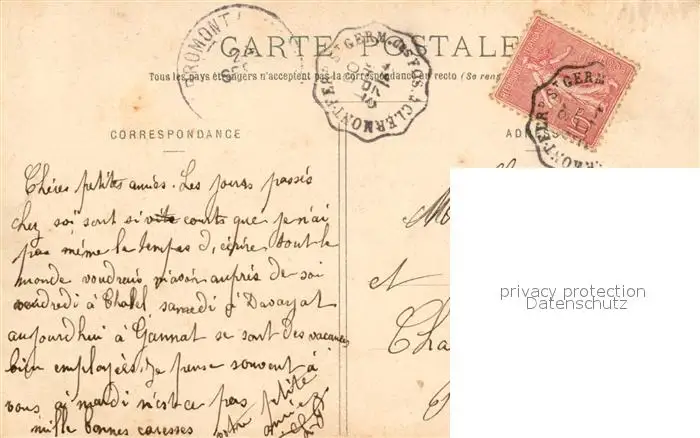 CARTE POSTALE
Tous les pays étrangers n'acceptent pas la correspondance au recto (Se rens
CORRESPONDANCE
AD
Chères petites amies. Les jours passés
chez soi sont si vite courts que je n'ai
pas même le temps d'écrire tout le
monde voudrais m'avoir auprès de soi
vendredi à Chatel samedi à Davayat
aujourdhui à Gannat se sont des vacances
bien employées. Je pense souvent à
vous, à mardi n'est ce pas
mille bonnes caresses votre petite
amie
et
Cha
ROMONT
ST GERM-DES-FOS A CLERMONT-FERD
ST GERM
privacy protection
Datenschutz